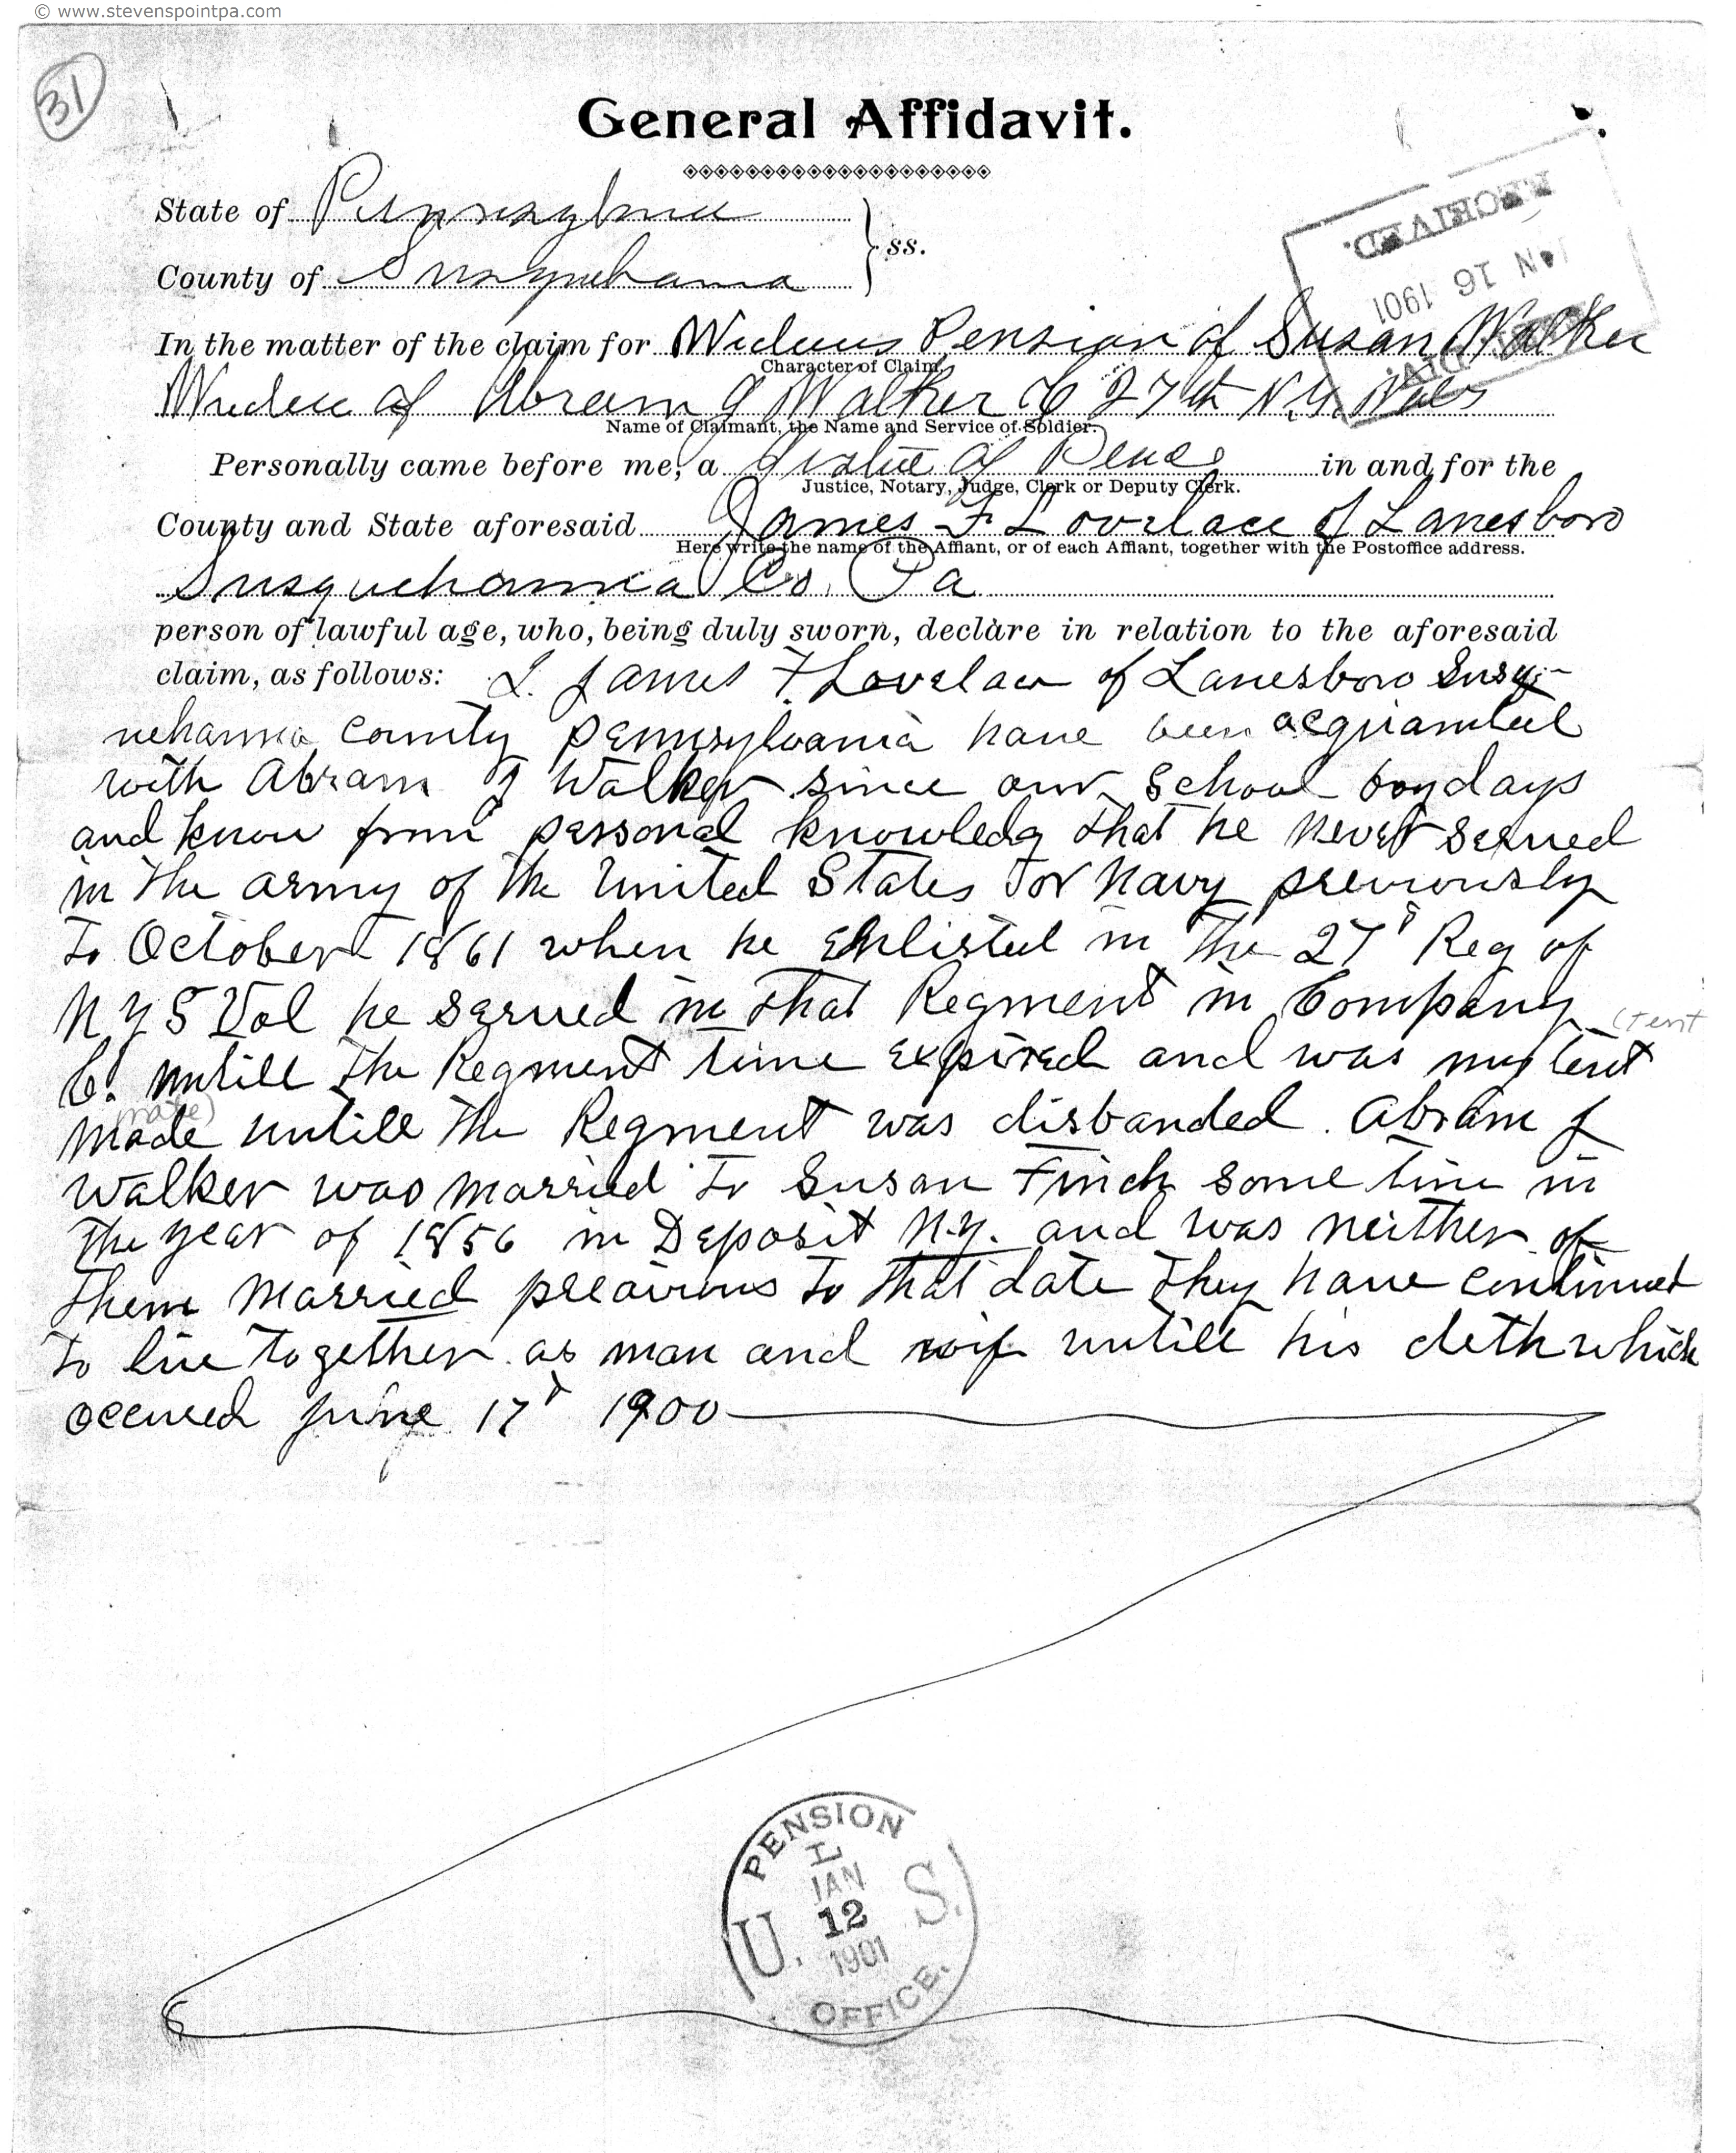 © www.stevenspointpa.com
31
General Affidavit.
State of Pennsylvania
County of Susquehanna
ss.
RECEIVED.
JAN 16 1901
DIV.
In the matter of the claim for Widows Pension of Susan Walker
Character of Claim.
Widow of Abram J Walker C 27th N.Y. Vols
Name of Claimant, the Name and Service of Soldier.
Personally came before me, a Justice of Peace in and for the
Justice, Notary, Judge, Clerk or Deputy Clerk.
County and State aforesaid James F Lovelace of Lanesboro
Here write the name of the Affiant, or of each Affiant, together with the Postoffice address.
Susquehanna Co. Pa
person of lawful age, who, being duly sworn, declare in relation to the aforesaid
claim, as follows: I. James F Lovelace of Lanesboro Susq-
uehanna County Pennsylvania have been acquianted
with Abram J Walker since our School boy days
and know from personal knowledg that he never served
in the army of the United States or Navy previously
to October 1861 when he Enlisted in the 27th Reg of
N Y S Vol he served in that Regment in Company
(tent
C. untill the Regment time expired and was my tent
mate)
made untill the Regment was disbanded. Abram J
Walker was married to Susan Finch some time in
the year of 1856 in Deposit N.Y. and was neither of
them Married preavious to that date they have continued
to live together as man and wif untill his deth which
occured June 17th 1900
PENSION
L
JAN
U. 12 S.
1901
OFFICE.